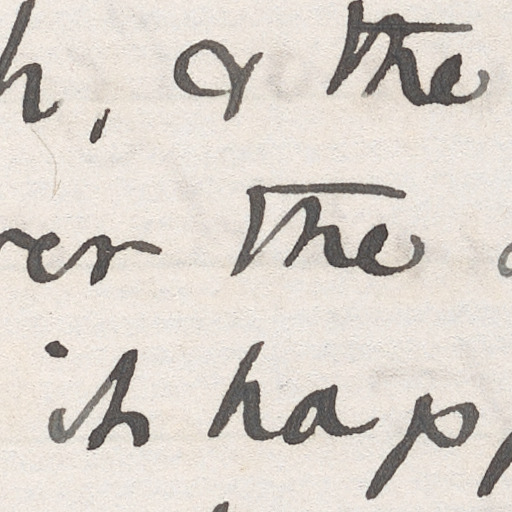 h, & the
ver the
its happ